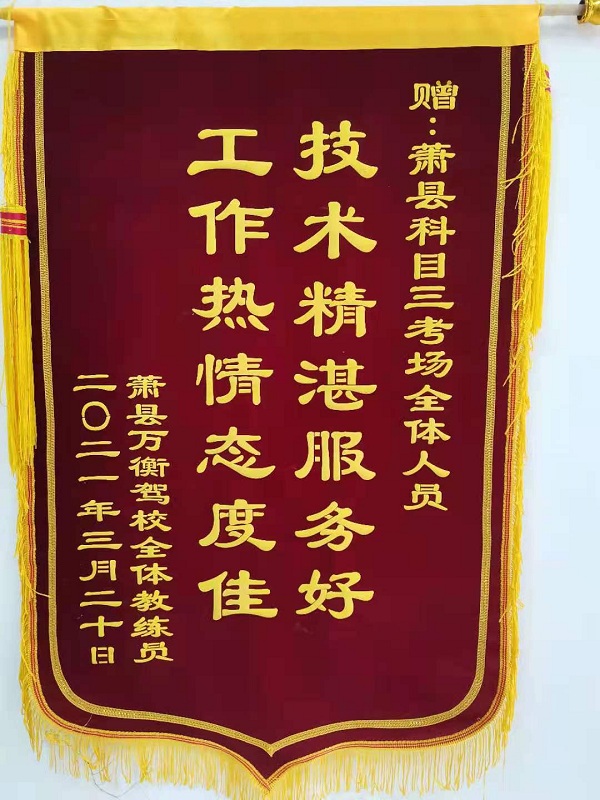 赠：萧县科目三考场全体人员
技术精湛服务好
工作热情态度佳
萧县万衡驾校全体教练员
二〇二一年三月二十日